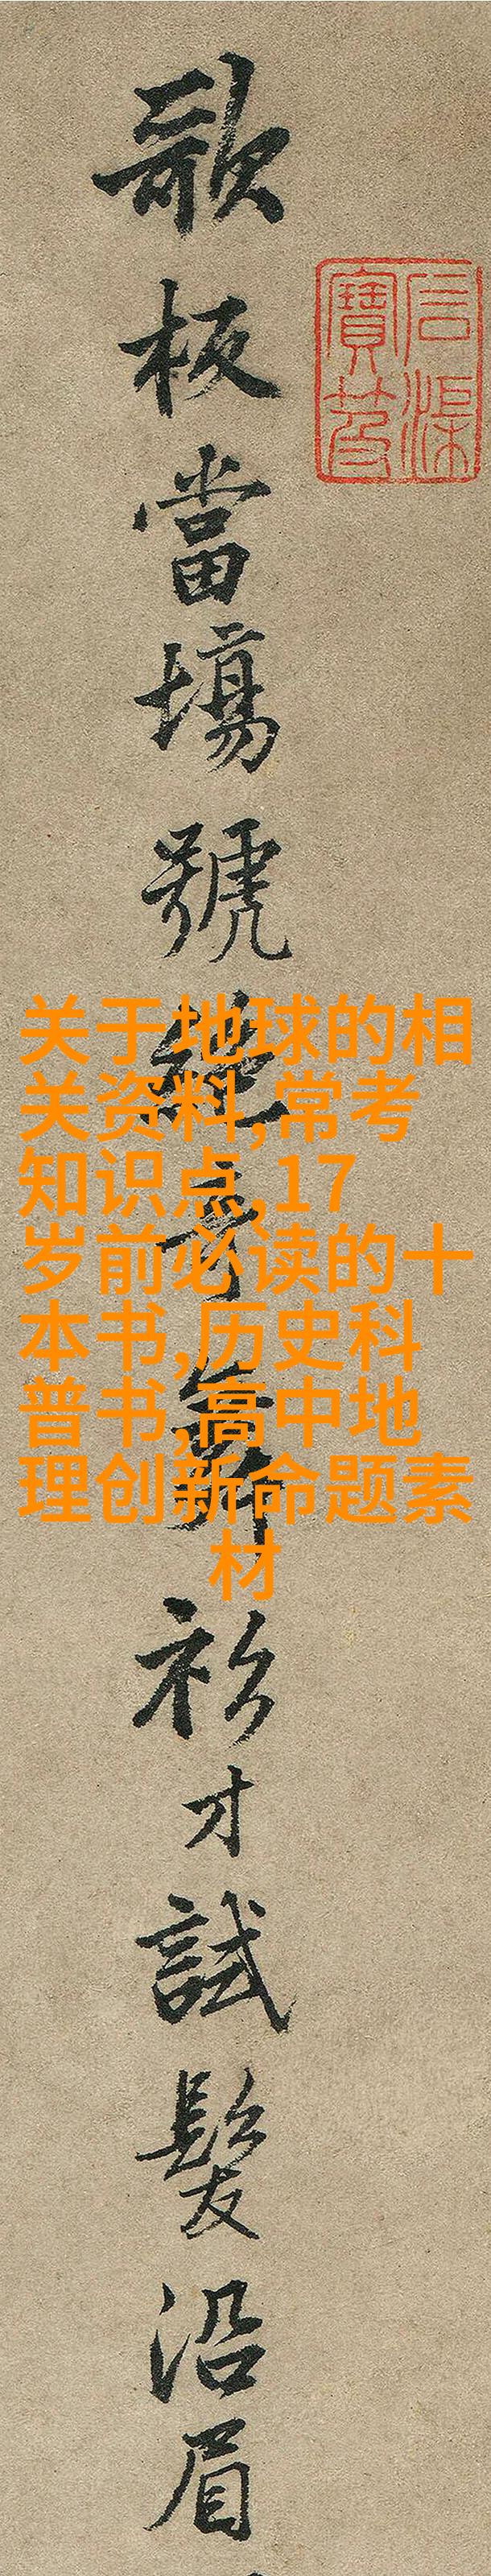 歌板當場號絕奇舞衫才試髮沿眉
石渠寶笈
关于地球的相
关资料,常考
知识点,17
岁前必读的十
本书,历史科
普书,高中地
理创新命题素
材